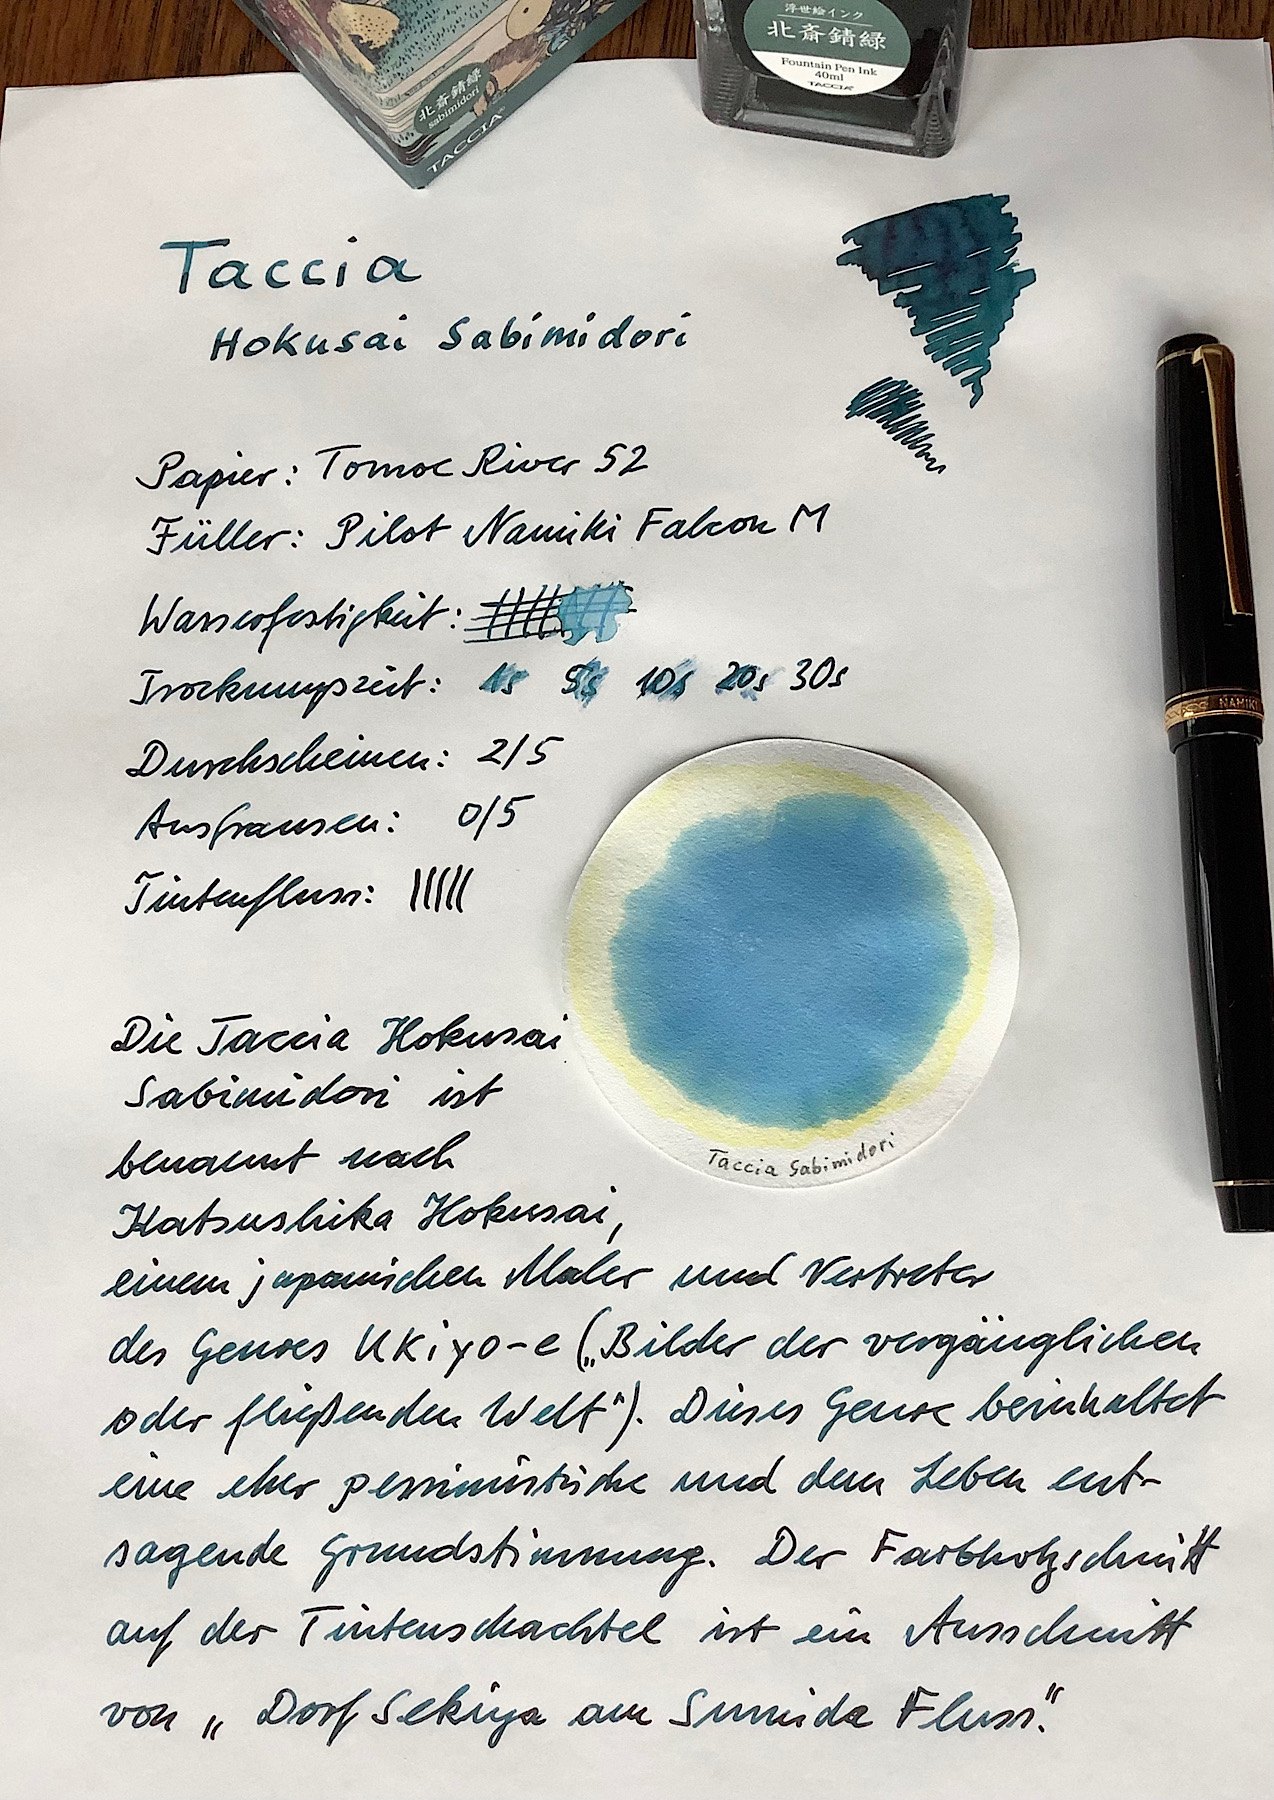 北斎錆緑
sabimidori
TACCIA
浮世絵インク
北斎錆緑
Fountain Pen Ink
40ml
TACCIA
Taccia
Hokusai Sabimidori
Papier: Tomoe River 52
Füller: Pilot Namiki Falcon M
Wasserfestigkeit:
Trockungszeit: 1s 5s 10s 20s 30s
NAMIKI
Durchscheinen: 2/5
Ausfransen: 0/5
Tintenfluss:
Taccia Sabimidori
Die Taccia Hokusai
Sabimidori ist
benannt nach
Katsushika Hokusai,
einem japanischen Maler und Vertreter
des Genres Ukiyo-e („Bilder der vergänglichen
oder fließenden Welt"). Dieses Genre beinhaltet
eine eher pessimistische und dem Leben ent-
sagende Grundstimmung. Der Farbholzschnitt
auf der Tintenschachtel ist ein Ausschnitt
von „Dorf Sekiya am Sumida Fluss."